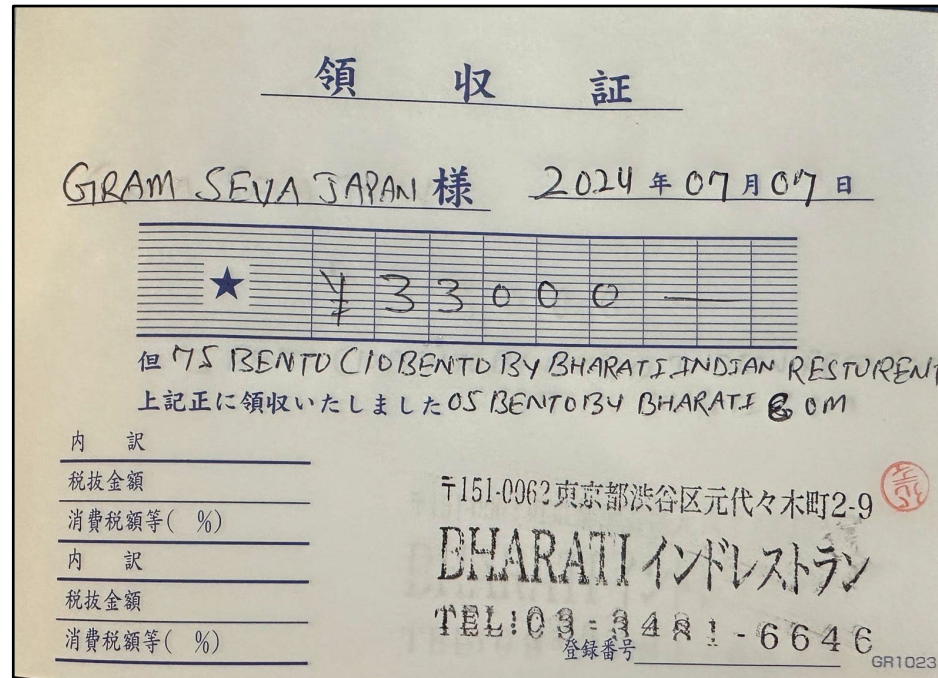 領 収 証
GRAM SEVA JAPAN 様 2024 年 07 月 07 日
★ ¥33000 —
但 75 BENTO (10 BENTO BY BHARATI INDIAN RESTURENT
上記正に領収いたしました 05 BENTO BY BHARATI & OM
内 訳
税抜金額
消費税額等( %)
内 訳
税抜金額
消費税額等( %)
〒151-0062 東京都渋谷区元代々木町2-9
BHARATI インドレストラン
TEL:03-3481-6646
登録番号
GR1023